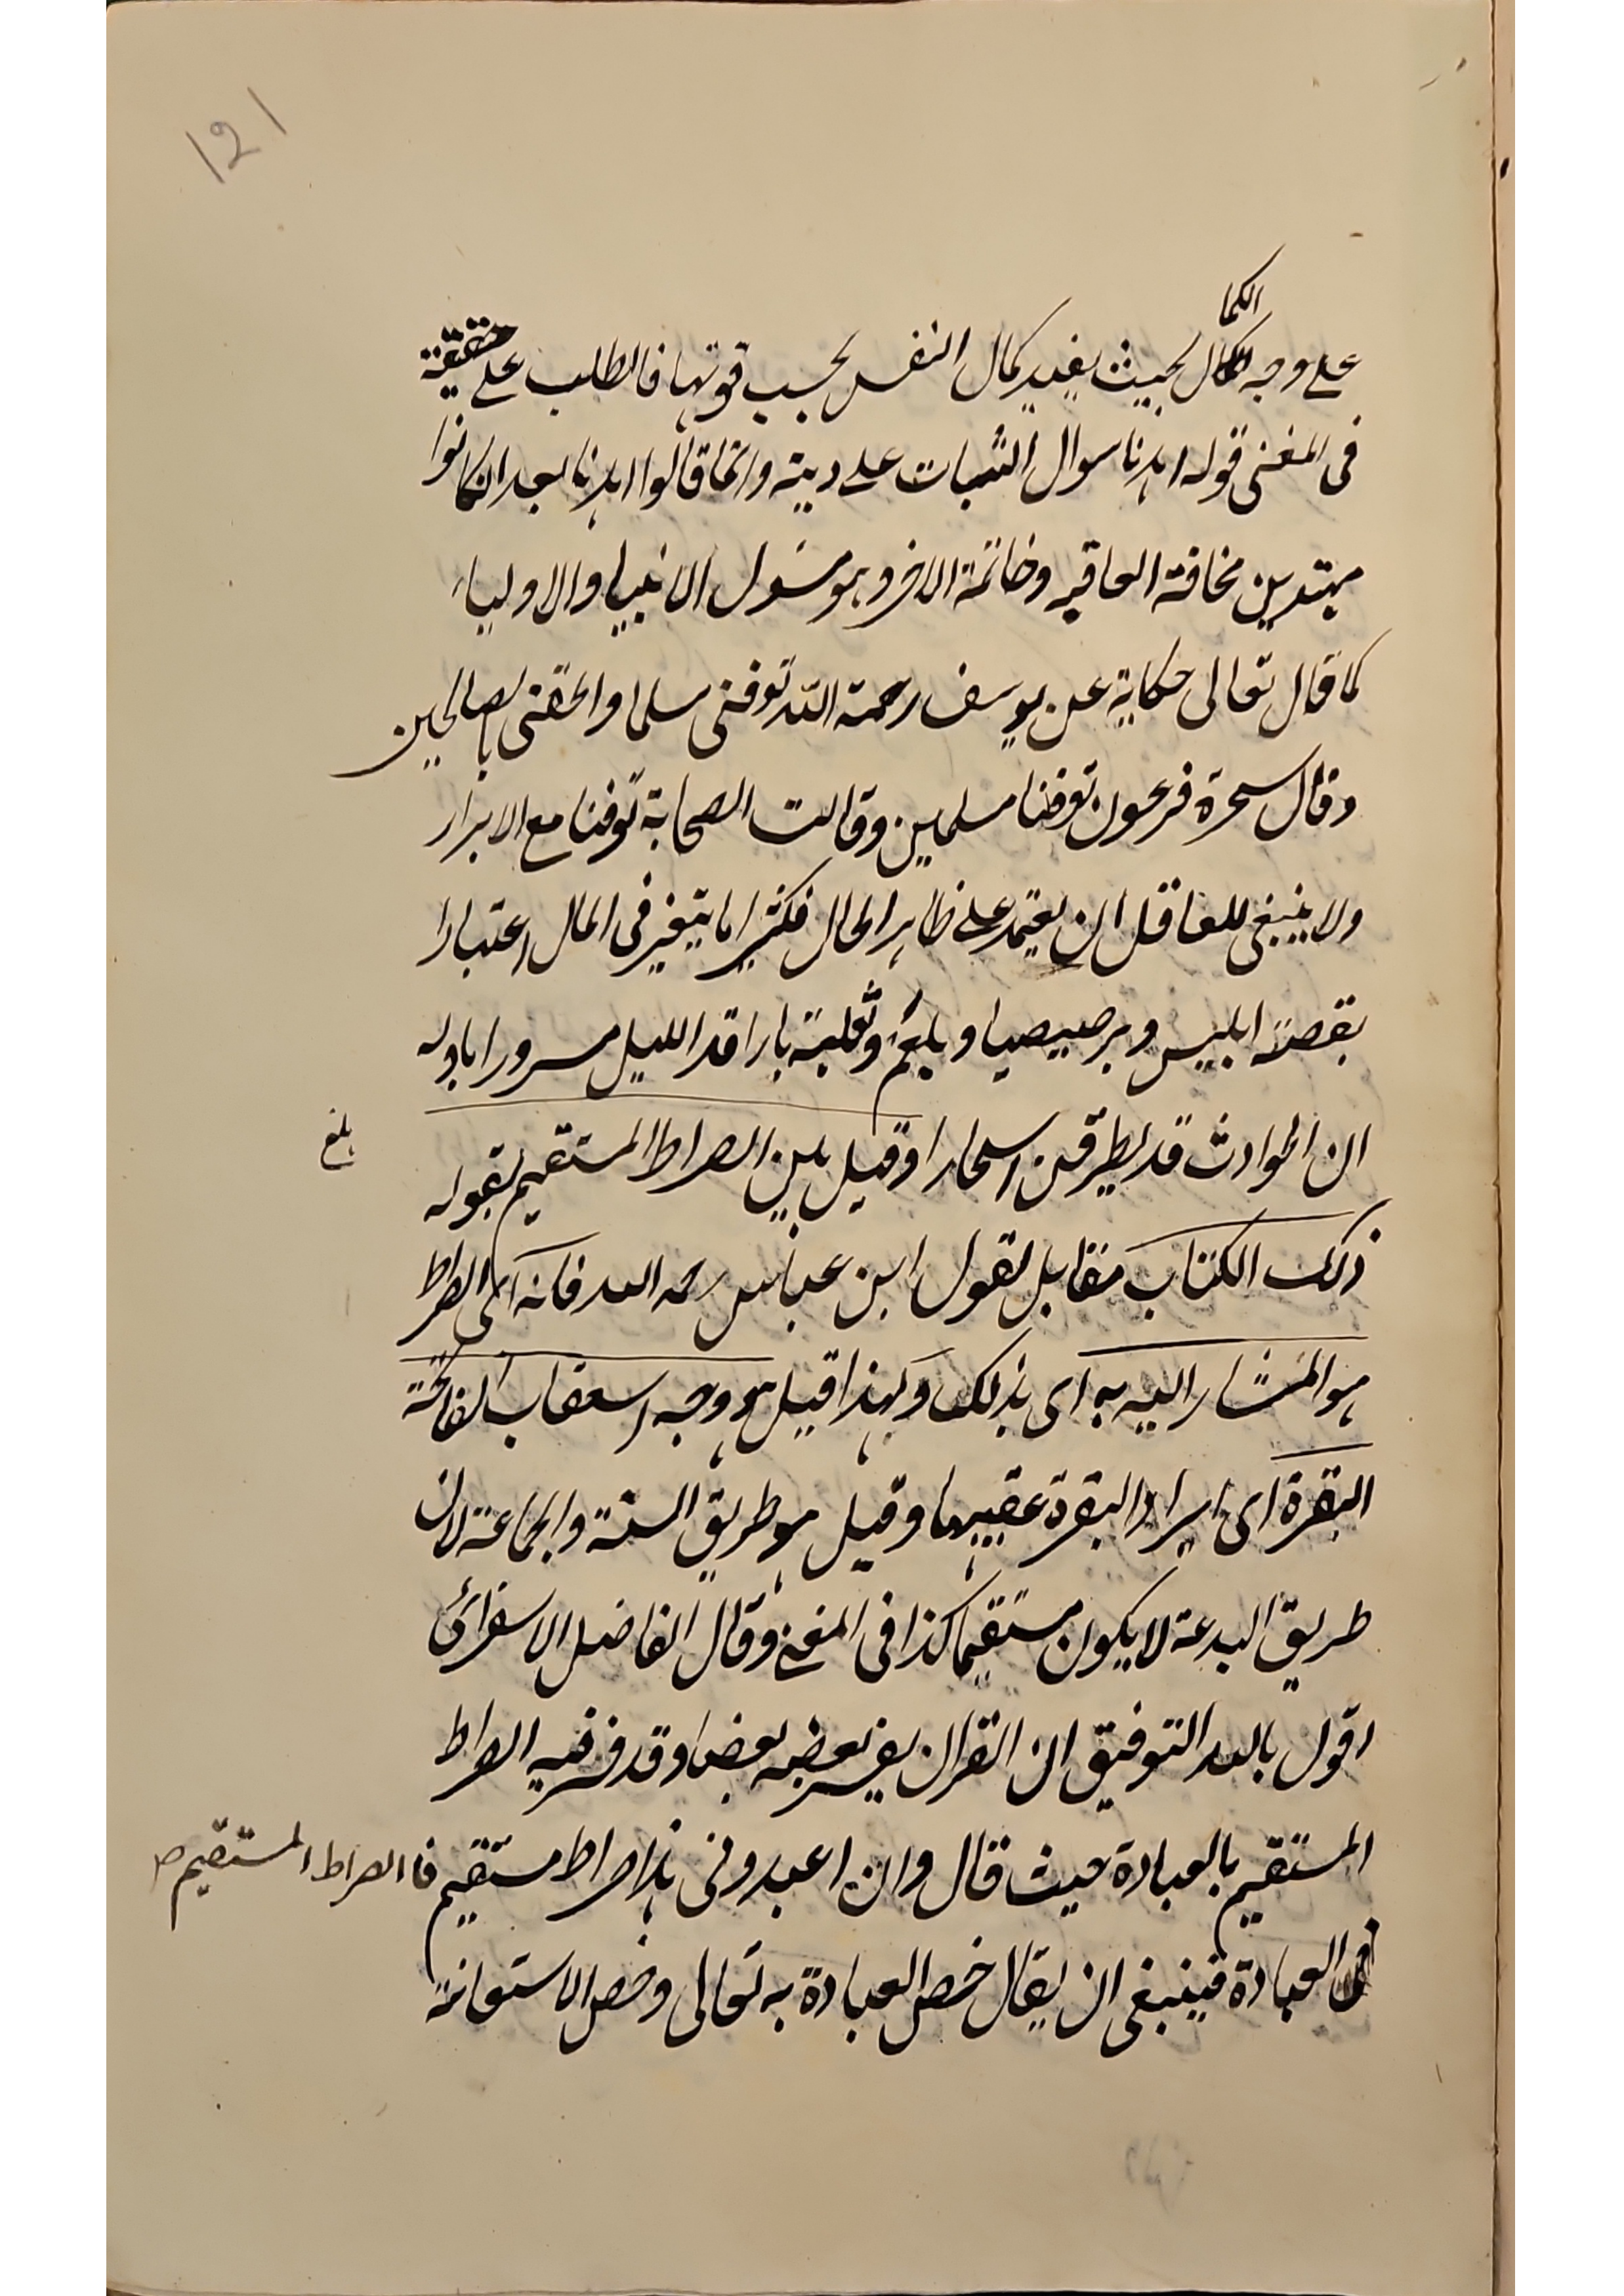 121
الكما
على وجه الكمال بحيث يفيد كمال النفس بحسب قوتها فالطلب على حقيقة
فى المغنى قوله اهدنا سوال الثبات على دينه وانما قالوا اهدنا بعد ان كانوا
مهتدين مخافة العاقبه وخاتمة الامر وهو مسئول الانبيا والاولياء
كما قال تعالى حكاية عن يوسف رحمة الله توفنى مسلما والحقنى بالصالحين
وقال سحرة فرعون توفنا مسلمين وقالت الصحابة توفنا مع الابرار
ولا ينبغى للعاقل ان يعتمد على ظاهر الحال فكثيرا ما يتغير فى المال اعتبارا
بقصة ابليس وبرصيصيا وبلعم وثعلبة يا راقد الليل مسرورا باوله
ان الحوادث قد يطرقن اسحارا وقيل بين الصراط المستقيم بقوله
بلغ
ذلك الكتاب مقابل لقول ابن عباس رحمه الله فانه اى الصراط
هو المشار اليه به اى بذلك ولهذا قيل هو وجه استعقاب الفاتحة
البقرة اى ايراد البقرة عقيبها وقيل هو طريق السنة والجماعة لان
طريق البدعة لا يكون مستقيما كذا فى المغنى وقال الفاضل الاسفرائى
اقول بالله التوفيق ان القران يفسر بعضه بعضا وقد فسر فيه الصراط
المستقيم بالعبادة حيث قال وان اعبدونى هذا صراط مستقيم فا الصراط المستقيم صـ
فى العبادة فينبغى ان يقال خص العبادة به تعالى وخص الاستعانة